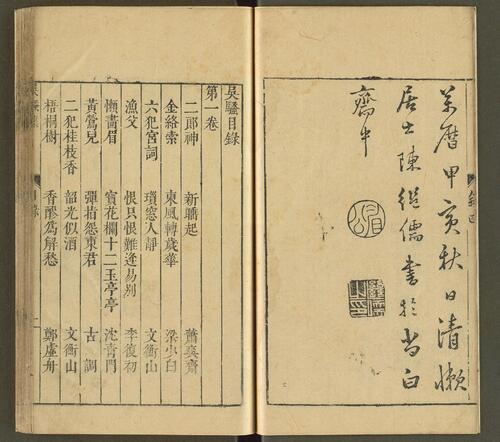 萬曆甲寅秋日清懶
居士陳繼儒書於尚白
齋中
吳騷目錄
第一卷
二郎神 新 起 蕭爽齋
金絡索 東風轉歲華 梁少白
六犯宮詞 瓊窓人靜 文衡山
漁父 恨只恨難逢易別 李復初
懶畫眉 寳花欄十二玉亭亭 沈青門
黃鶯兒 彈指怨東君 古調
二犯桂枝香 韶光似酒 文衡山
梧桐樹 香醪爲解愁 鄭虛舟